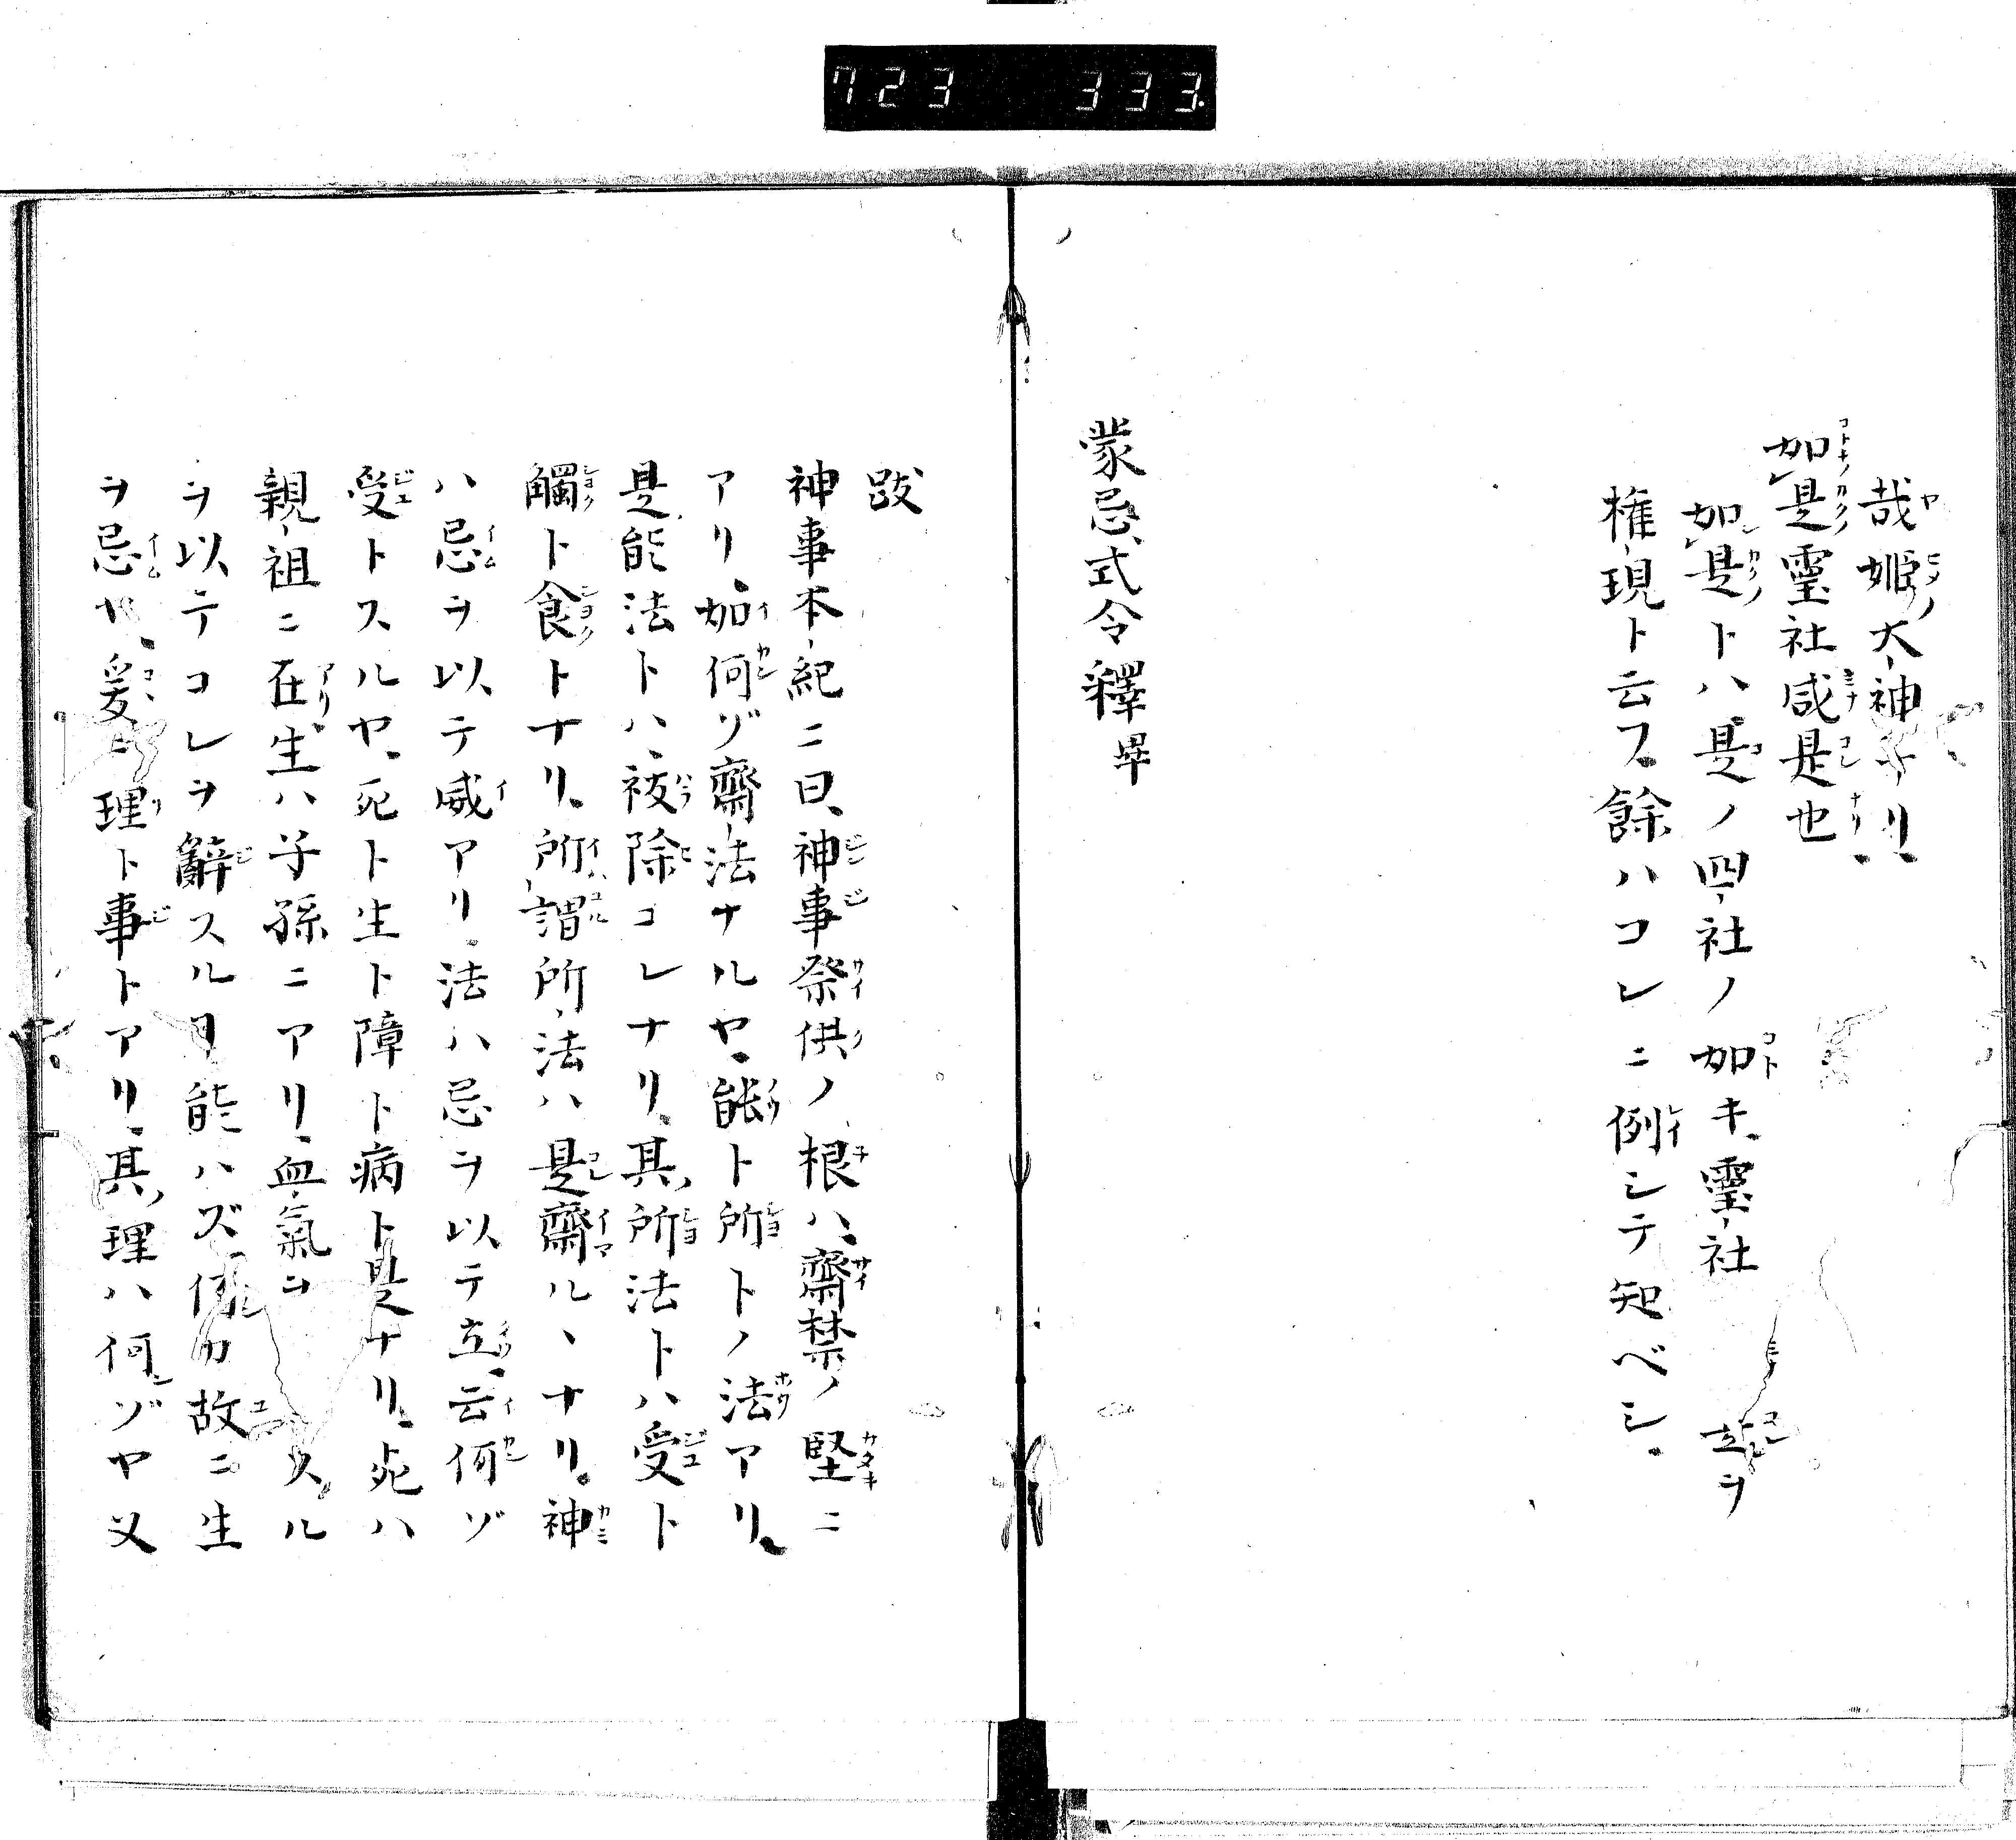 723 333
哉姫大神ナリ、
如是靈社咸是也
如是トハ是ノ四社ノ如キ、靈社
権現ト云フ、餘ハコレニ例シテ知ベシ、
蒙忌式令釋畢
跋
神事本紀ニ曰、神事祭供ノ根ハ、齋禁ノ堅ニ
アリ、如何ゾ齋法ナルヤ、能ト所トノ法アリ、
是能法トハ、祓除コレナリ、其所法トハ受ト
觸ト食トナリ、所謂所法ハ是齋ル、ナリ。神
ハ忌ヲ以テ威アリ、法ハ忌ヲ以テ立、云何ゾ
受トスルヤ、死ト生ト障ト病ト是ナリ、死ハ
親祖ニ在生ハ子孫ニアリ、血氣ヲ スル
ヲ以テコレヲ辭スルヿ能ハズ 故ニ生
ヲ忌 爰ニ理ト事トアリ、其理ハ何ゾヤ又